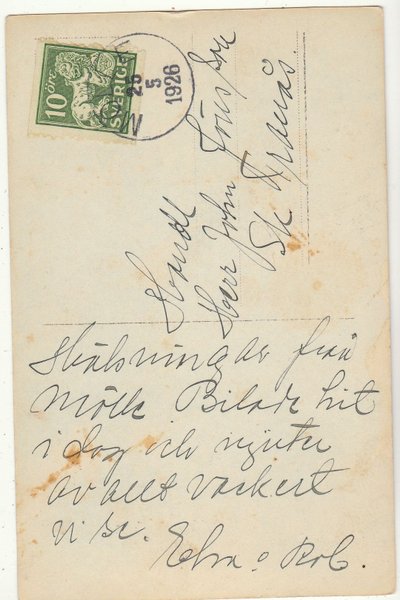 10 ÖRE
SVERIGE
MÖLLE
25
5
1926
Handl
Herr John Jönsson
Sk Tranås.
Hälsningar från
Mölle Bilade hit
i dag och njuter
av allt vackert
vi se.
Elna o Rob.